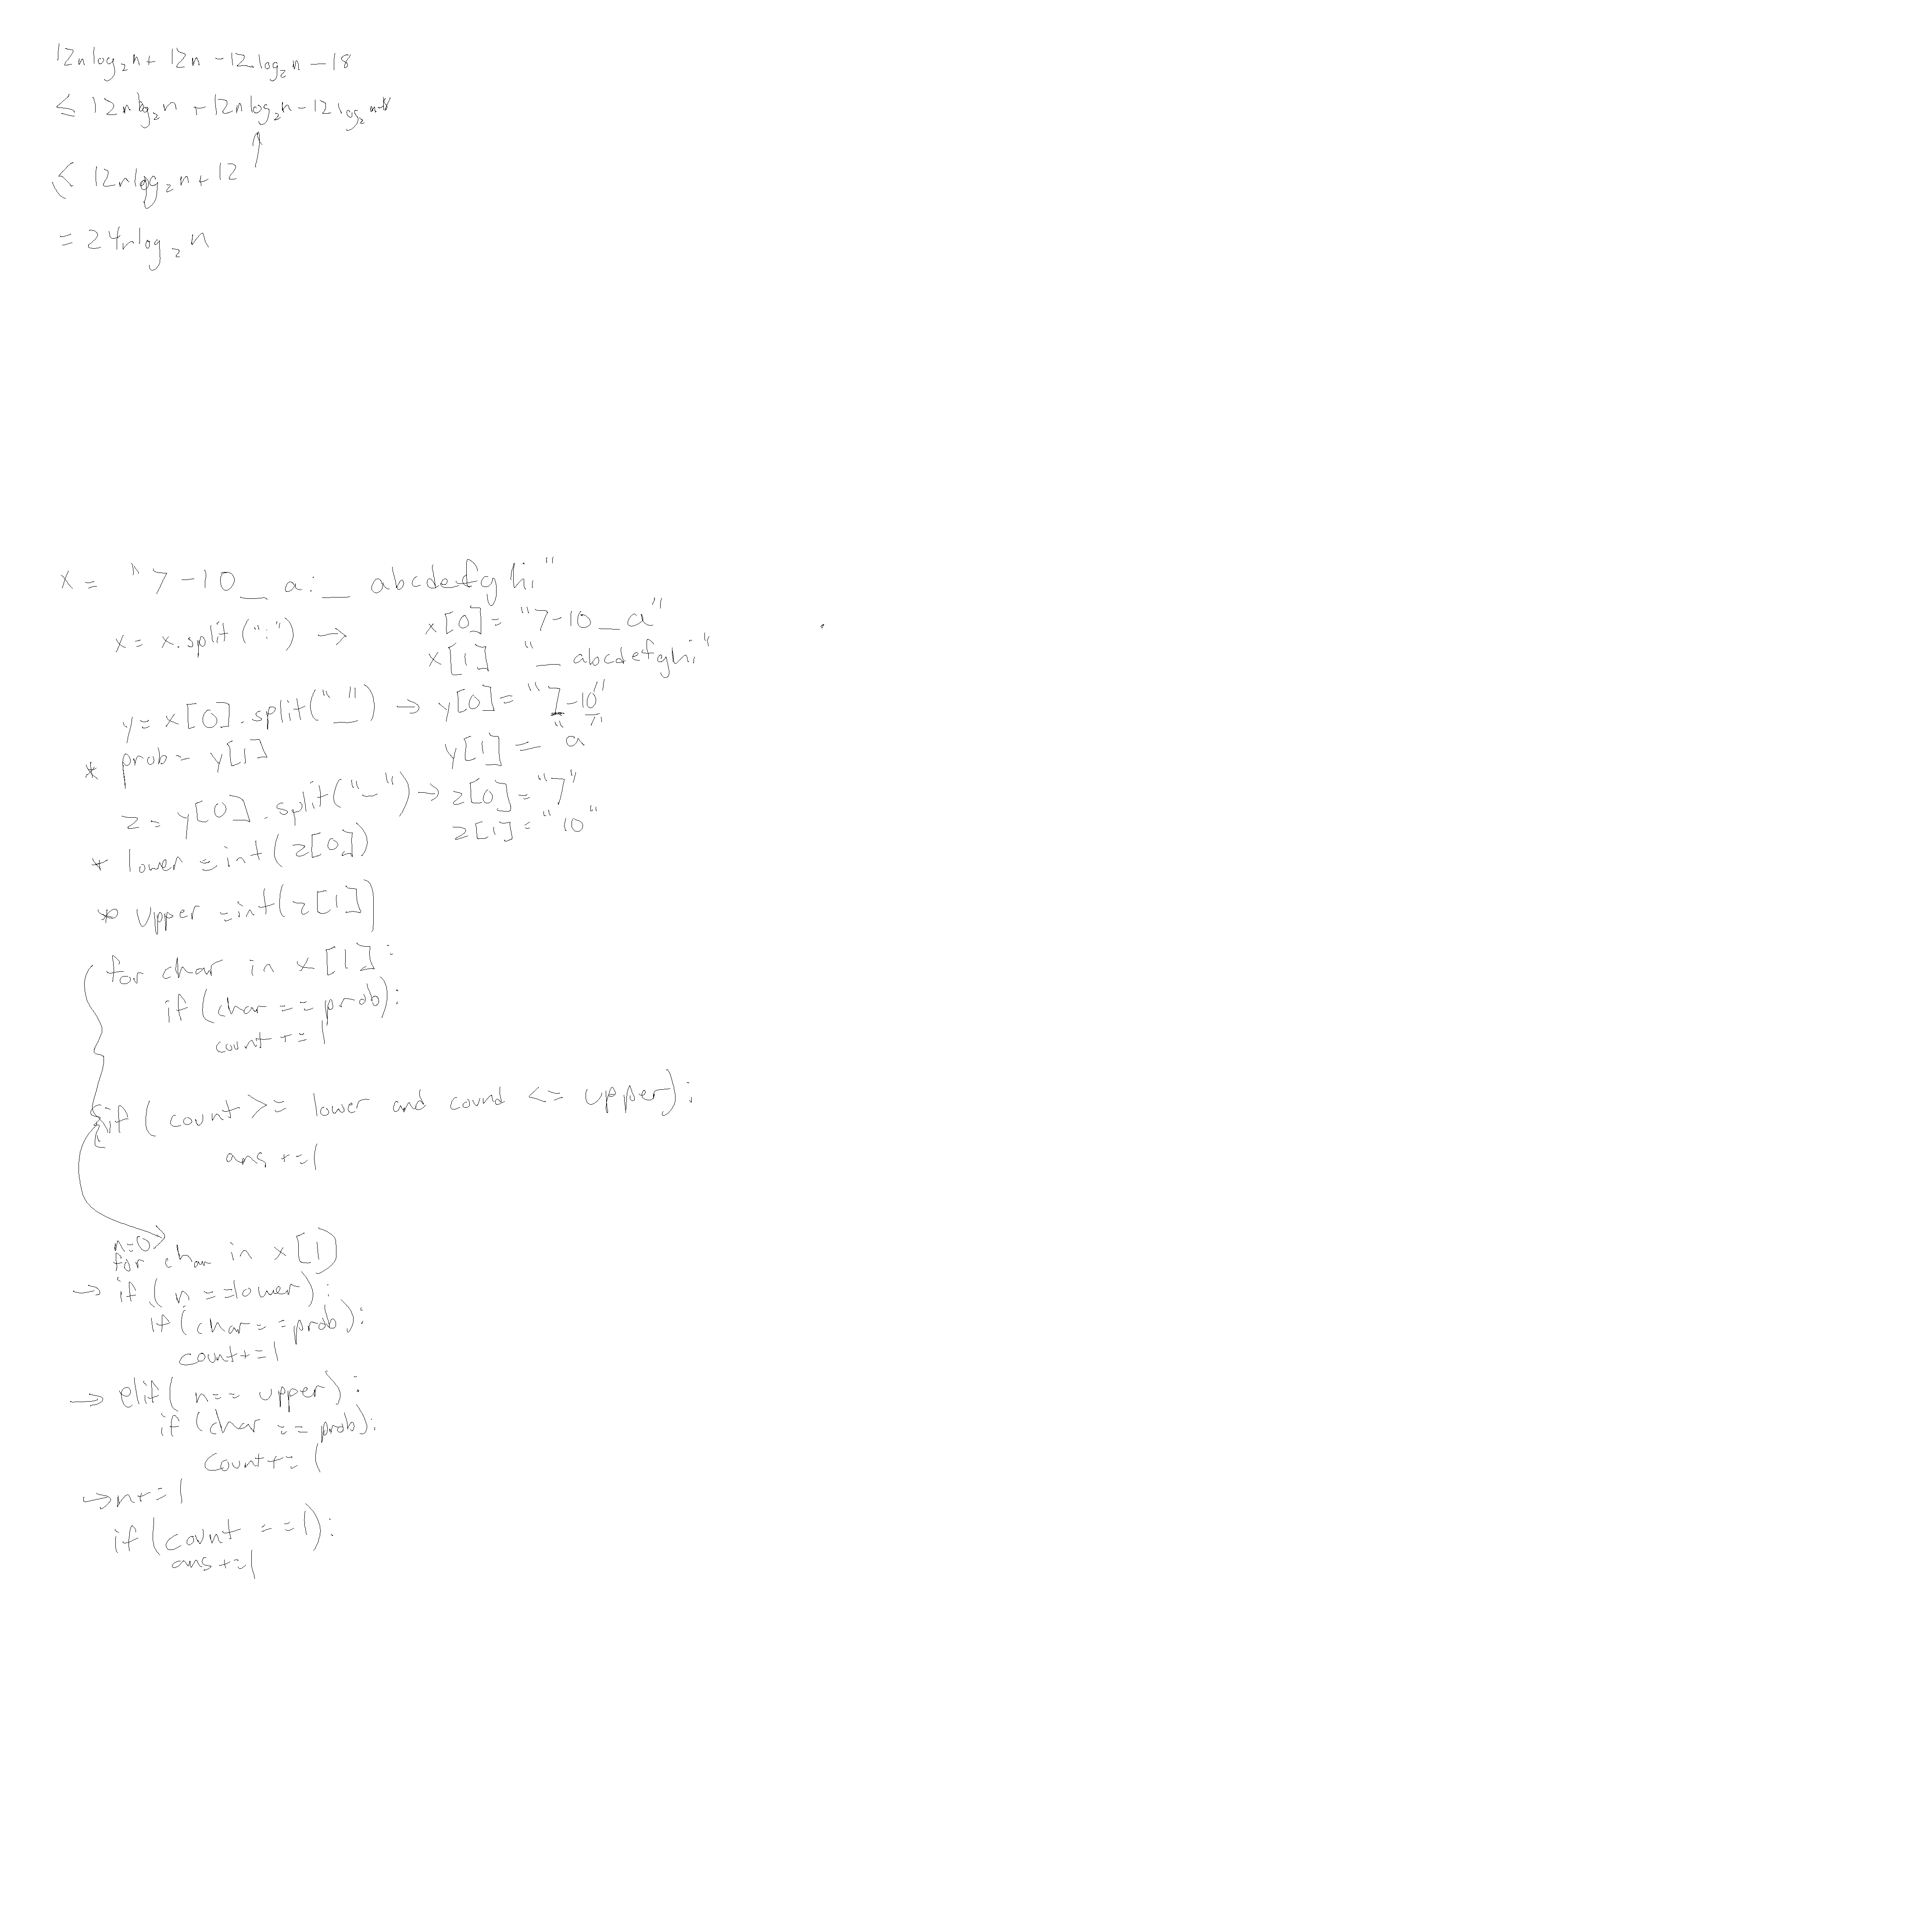 12nlog₂n + 12n - 12log₂n - 18
≤ 12nlog₂n + 12nlog₂n - 12log₂n-18
≤ 12nlog₂n + 12
= 24nlog₂n
x = "7-10_a:_abcdefghi"
x = x.split(":") → x[0] = "7-10_a"
x[1] "_abcdefghi"
y = x[0].split("_") → y[0] = "7-10"
* prob = y[1] y[1] = "a"
z = y[0].split("-") → z[0] = "7"
* lower = int(z[0]) z[1] = "10"
* upper = int(z[1])
for char in x[1]:
if (char == prob):
count += 1
if (count >= lower and cound <= upper):
ans += 1
n=0
for char in x[1]
→ if (n == lower):
if (char == prob):
count += 1
→ elif (n == upper):
if (char == prob):
count += 1
→ n += 1
if (count == 1):
ans += 1